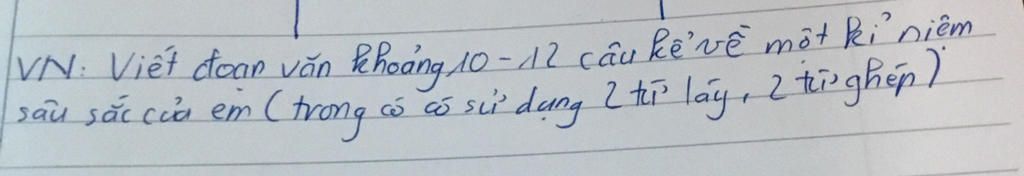 VN: Viết đoạn văn khoảng 10-12 câu kể về một kỉ niệm
sâu sắc của em (trong có có sử dụng 2 từ láy, 2 từ ghép)